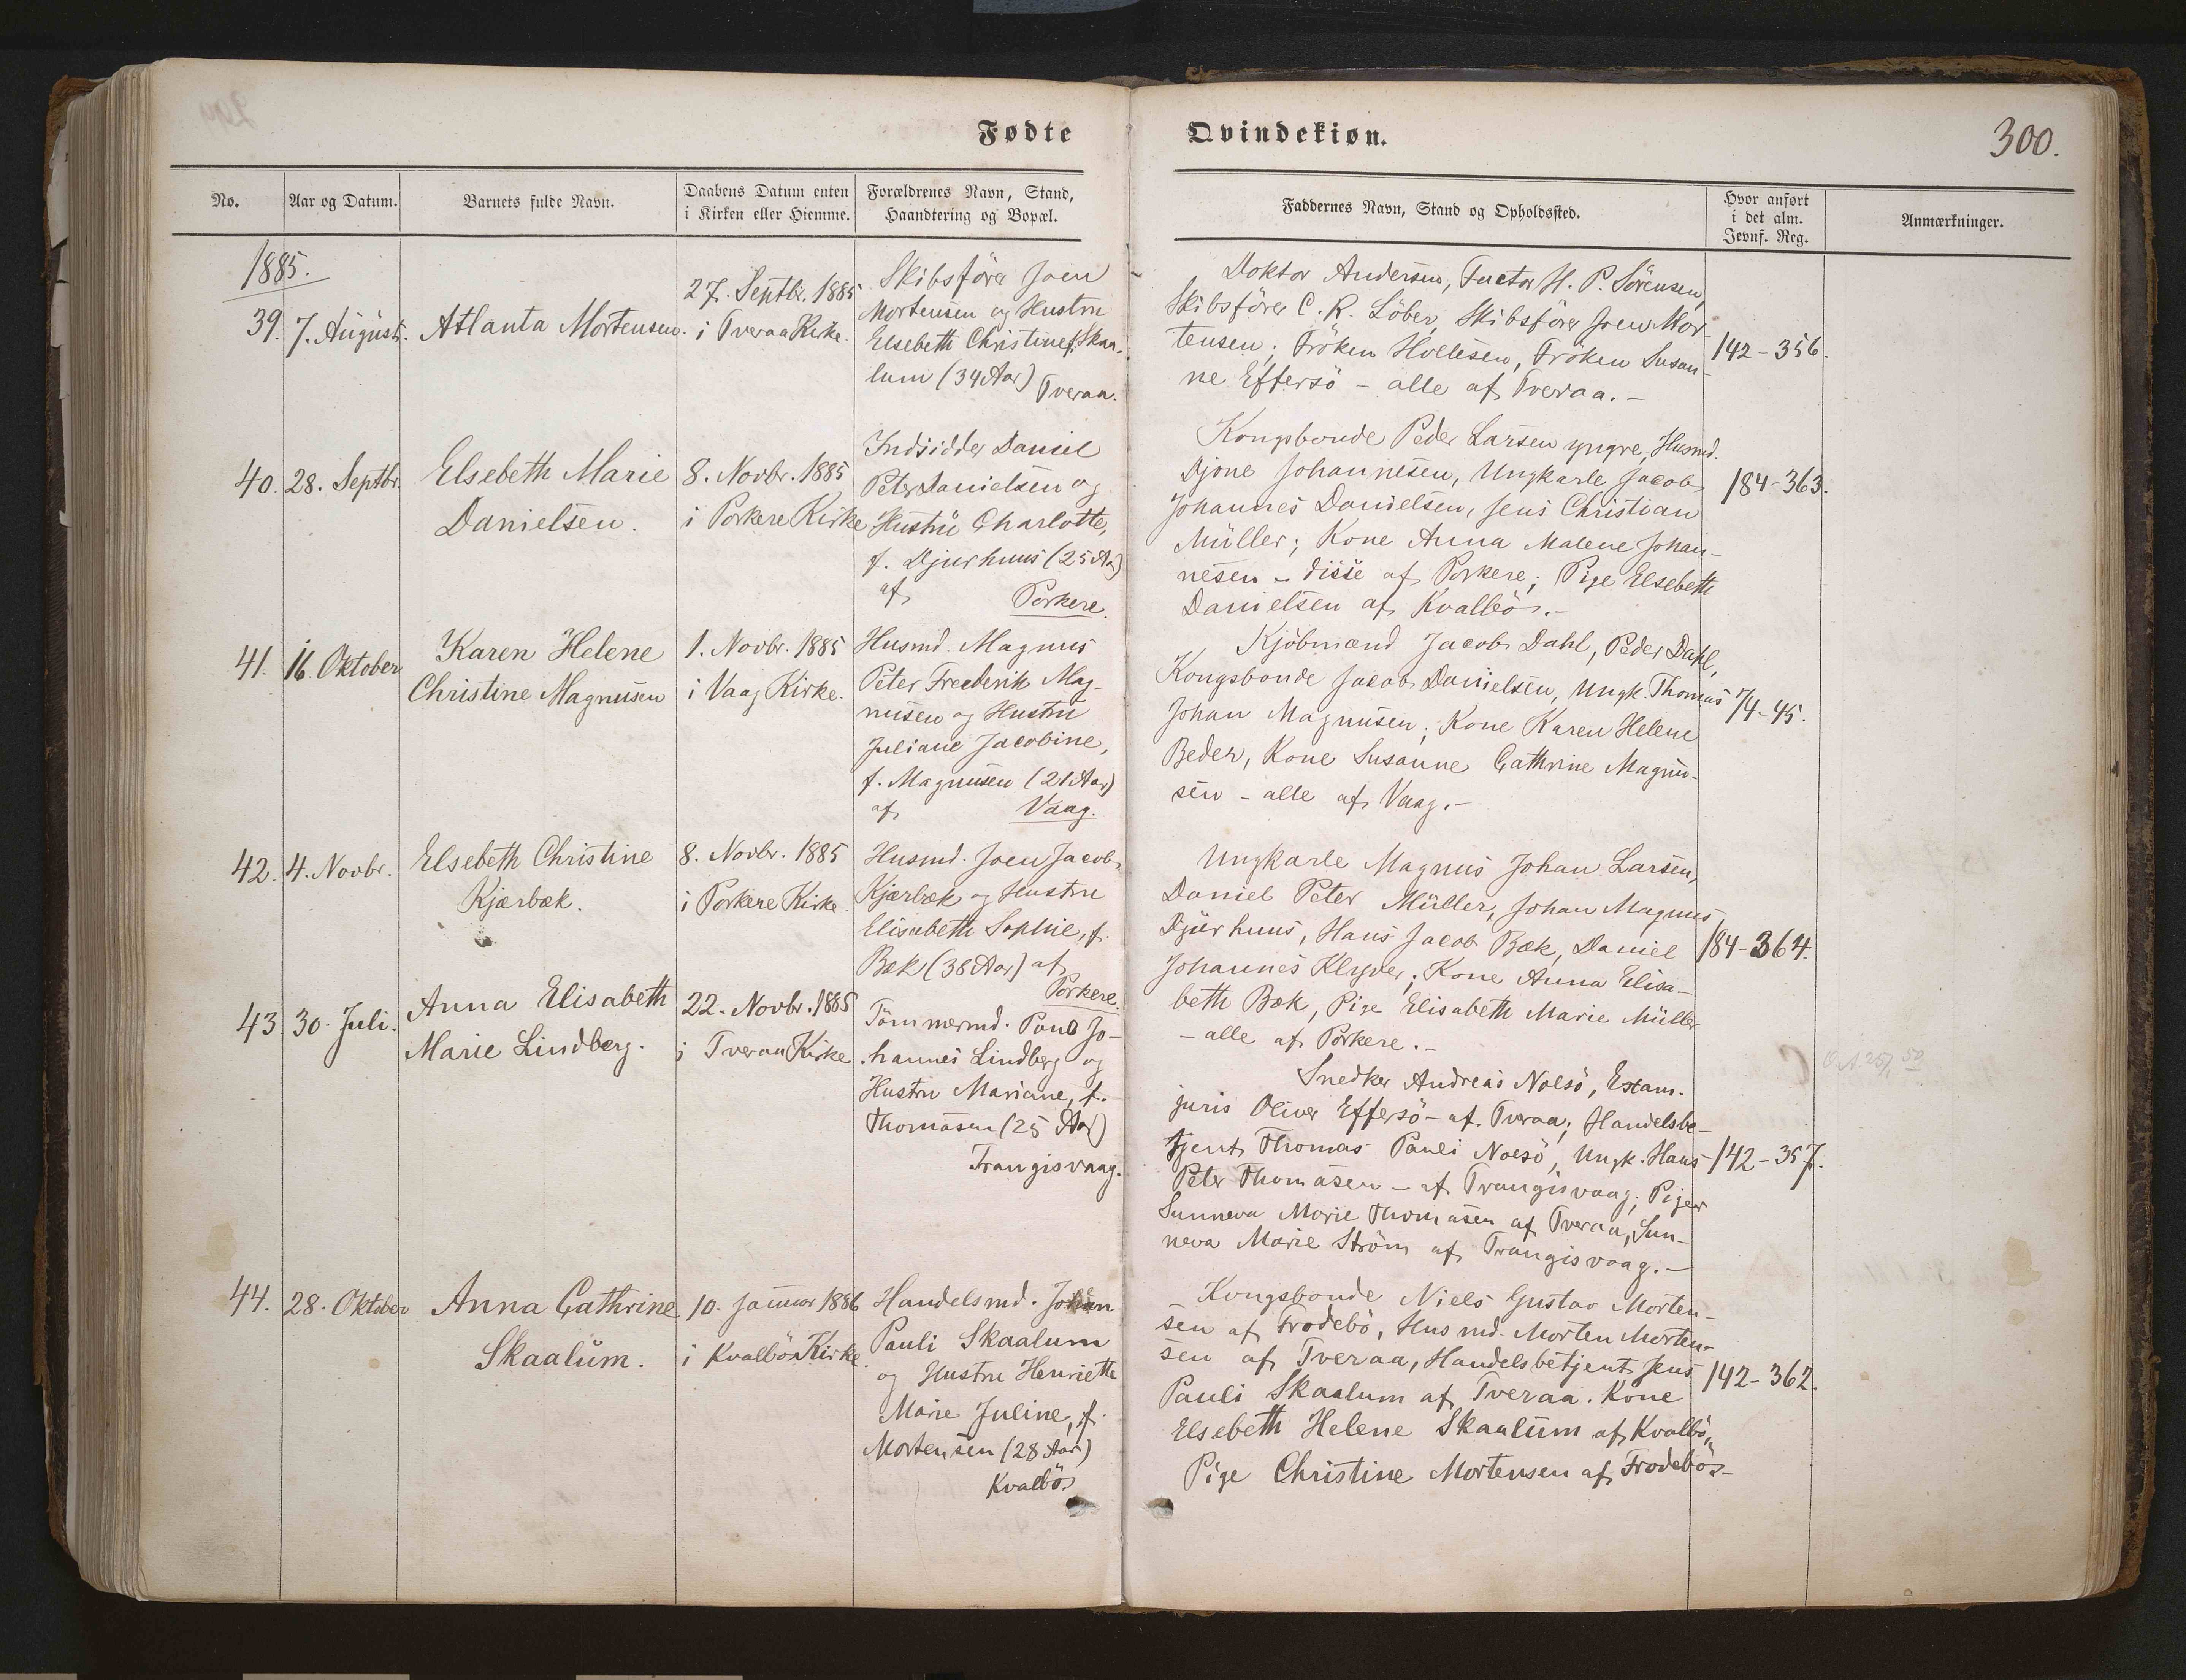 Fødte
Qvindekiøn.
300.
No.
Aar og Datum.
Barnets fulde Navn.
Daabens Datum enten
i Kirken eller Hiemme.
Forældrenes Navn, Stand,
Haandtering og Bopæl.
Faddernes Navn, Stand og Opholdssted.
Hvor anført
i det alm.
Jevnf. Reg.
Anmærkninger.
1885.
39.
7. August.
Atlanta Mortensen.
27. Septbr. 1885
i Tveraa Kirke.
Skibsförer Joen
Mortensen og Hustru
Elsebeth Christine f. Skaa-
lum (34 Aar)
Tveraa.
Doktor Andersen, Factor H. P. Sörensen,
Skibsförer C. R. Löber, Skibsförer Joen Mor-
tensen; Fröken Holtesen, Fröken Susan-
ne Effersö - alle af Tveraa. -
142-356.
40.
28. Septbr.
Elsebeth Marie
Danielsen.
8. Novbr. 1885
i Porkere Kirke
Indsidder Daniel
Peter Danielsen og
Hustru Charlotte,
f. Djurhuus (25 Aar)
af
Porkere.
Kongsbonde Peder Larsen yngre, Husmd.
Djone Johannesen, Ungkarle Jacob
Johannes Danielsen, Jens Christian
Müller; Kone Anna Malene Johan-
nesen - disse af Porkere; Pige Elsebeth
Danielsen af Kvalbö. -
184-363.
41.
16. Oktober
Karen Helene
Christine Magnusen
1. Novbr. 1885
i Vaag Kirke.
Husmd. Magnus
Peter Frederik Mag-
nusen og Hustru
Juliane Jacobine,
f. Magnusen (21 Aar)
af
Vaag.
Kjöbmænd Jacob Dahl, Peder Dahl,
Kongsbonde Jacob Danielsen, Ungk. Thomas
Johan Magnusen; Kone Karen Helene
Beder, Kone Susanne Cathrine Magnu-
sen - alle af Vaag. -
74-45.
42.
4. Novbr.
Elsebeth Christine
Kjærbæk.
8. Novbr. 1885
i Porkere Kirke.
Husmd. Joen Jacob
Kjærbæk og Hustru
Elisabeth Sophie, f.
Bæk (38 Aar) af
Porkere.
Ungkarle Magnus Johan Larsen,
Daniel Peter Müller, Johan Magnus
Djurhuus, Hans Jacob Bæk, Daniel
Johannes Klyver; Kone Anna Elisa-
beth Bæk, Pige Elisabeth Marie Müller
- alle af Porkere. -
184-364.
43.
30. Juli.
Anna Elisabeth
Marie Lindberg.
22. Novbr. 1885
i Tveraa Kirke
Tömmermd. Poul Jo-
hannes Lindberg og
Hustru Mariane, f.
Thomasen (25 Aar)
Trangisvaag.
Snedker Andreas Nolsö, Exam.
juris Oliver Effersö - af Tveraa; Handelsbe-
tjent Thomas Pauli Nolsö, Ungk. Hans
Peter Thomasen - af Trangisvaag; Piger
Sunneva Marie Thomasen af Tveraa, Sun-
neva Marie Ström af Trangisvaag. -
142-357.
44.
28. Oktober
Anna Cathrine
Skaalum.
10. Januar 1886
i Kvalbö Kirke.
Handelsmd. Johan
Pauli Skaalum
og Hustru Henriette
Marie Juline, f.
Mortensen (28 Aar)
Kvalbö
Kongsbonde Niels Gustav Morten-
sen af Frodebö, Husmd. Morten Morten-
sen af Tveraa, Handelsbetjent Jens
Pauli Skaalum af Tveraa. Kone
Elsebeth Helene Skaalum af Kvalbö,
Pige Christine Mortensen af Frodebö -
142-362.